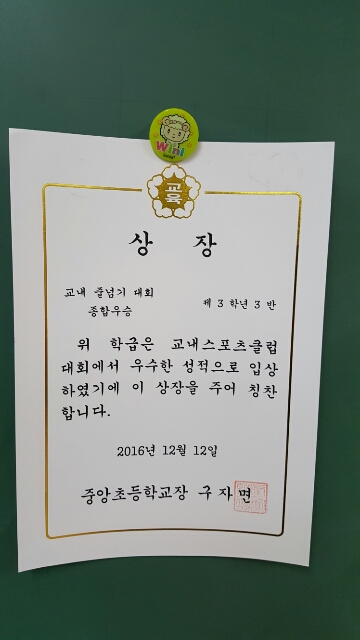 Wini
교육
상 장
교내 줄넘기 대회
종합우승
제 3 학년 3 반
위 학급은 교내스포츠클럽
대회에서 우수한 성적으로 입상
하였기에 이 상장을 주어 칭찬
합니다.
2016년 12월 12일
중앙초등학교장 구자면